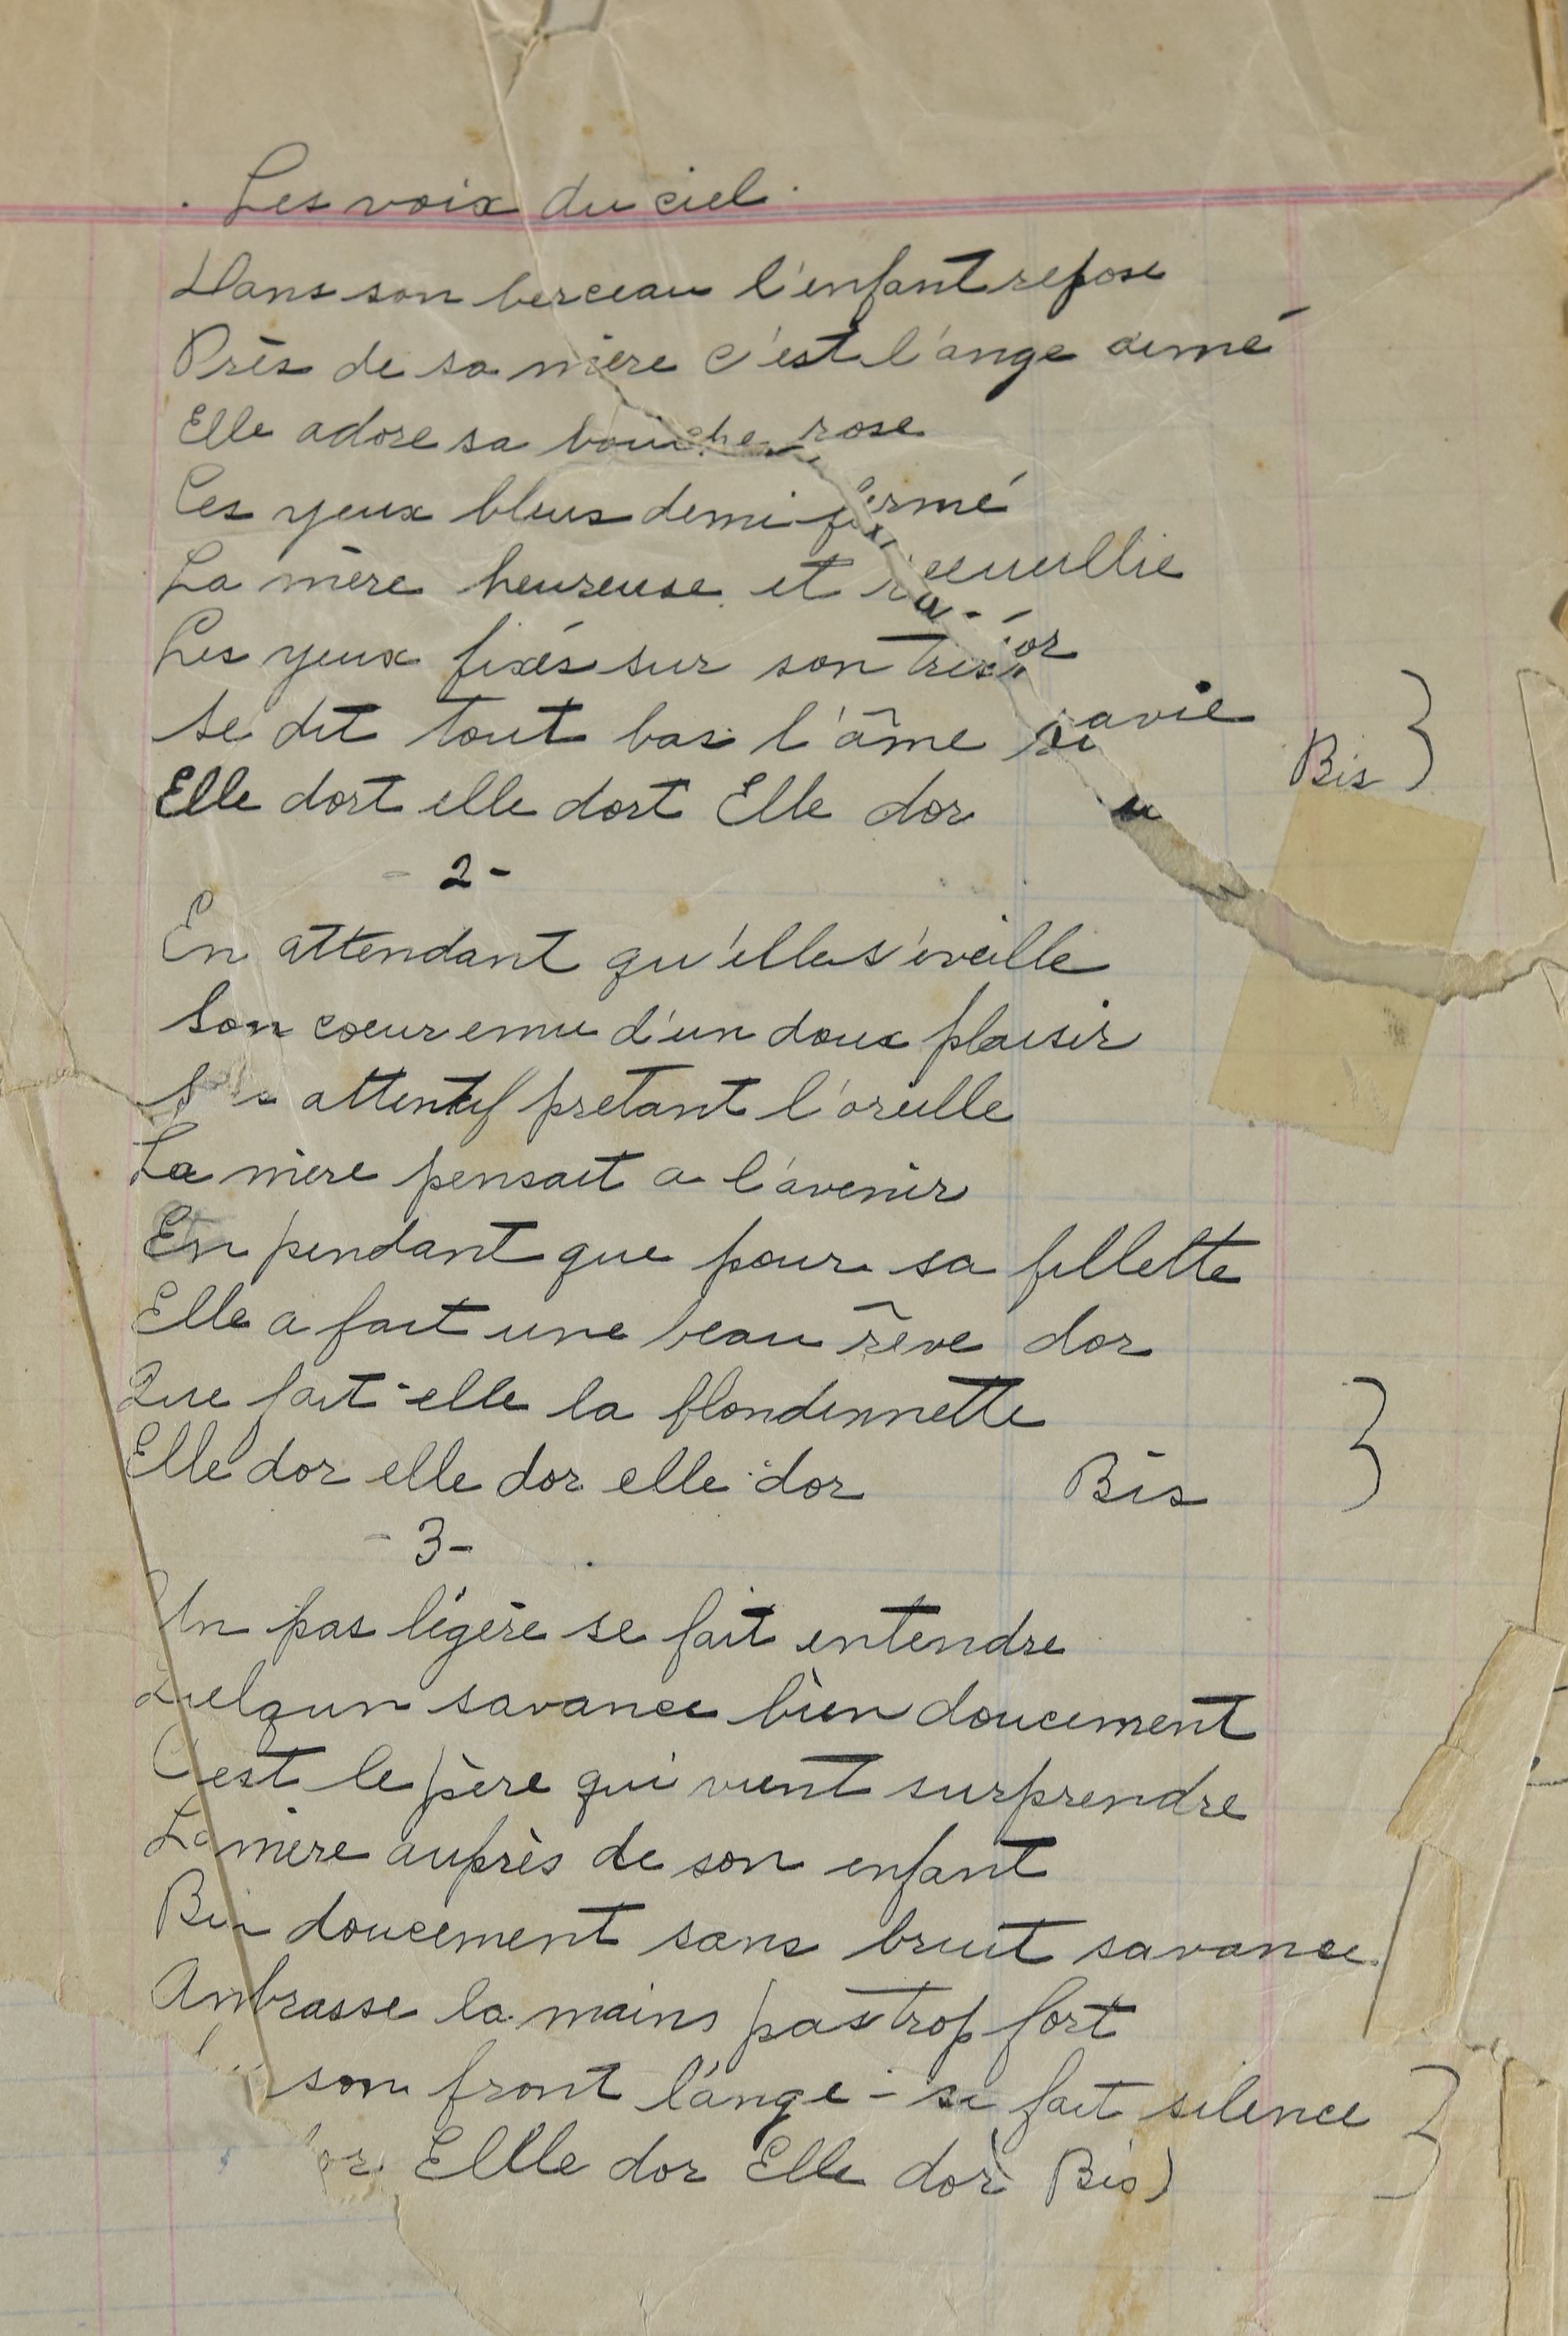 Les voix du ciel
Dans son berceau l'enfant repose
Près de sa mère c'est l'ange aimé
Elle adore sa bouche rose
Ces yeux bleus demi fermé
La mère heureuse et recueullie
Les yeux fixés sur son trésor
Se dit tout bas l'âme ravie
Bis
Elle dort elle dort Elle dor
- 2 -
En attendant qu'elle s'éveille
Son coeur emu d'un doux plaisir
attentif pretant l'oreille
La mère pensait a l'avenir
En pendant que pour sa fillette
Elle a fait une beau rêve dor
Que fait-elle la blondinnette
Elle dor elle dor elle dor Bis
- 3 -
Un pas légère se fait entendre
Quelqun savance bien doucement
C'est le père qui vient surprendre
La mère auprès de son enfant
Bien doucement sans bruit savance
Ambrasse la mains pas trop fort
son front l'ange - se fait silence
Ellle dor Elle dor Bis)